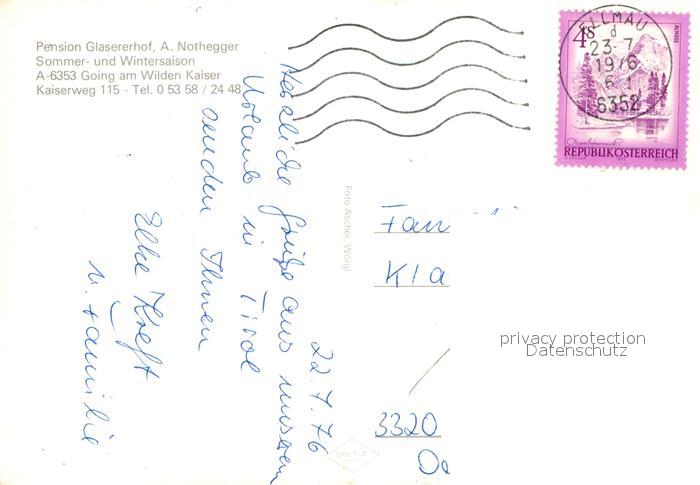 Pension Glasererhof, A. Nothegger
Sommer- und Wintersaison
A-6353 Going am Wilden Kaiser
Kaiserweg 115 - Tel. 0 53 58 / 24 48
ELLMAU
d
23-7
1976
6352
4S
ALMSEE
REPUBLIK ÖSTERREICH
22.7.76
Herzliche Grüße aus unserem
Urlaub in Tirol
senden Ihnen
Elke Kreft
u. Familie
Foto Ascher, Wörgl
Fam
Kla
3320
privacy protection
Datenschutz